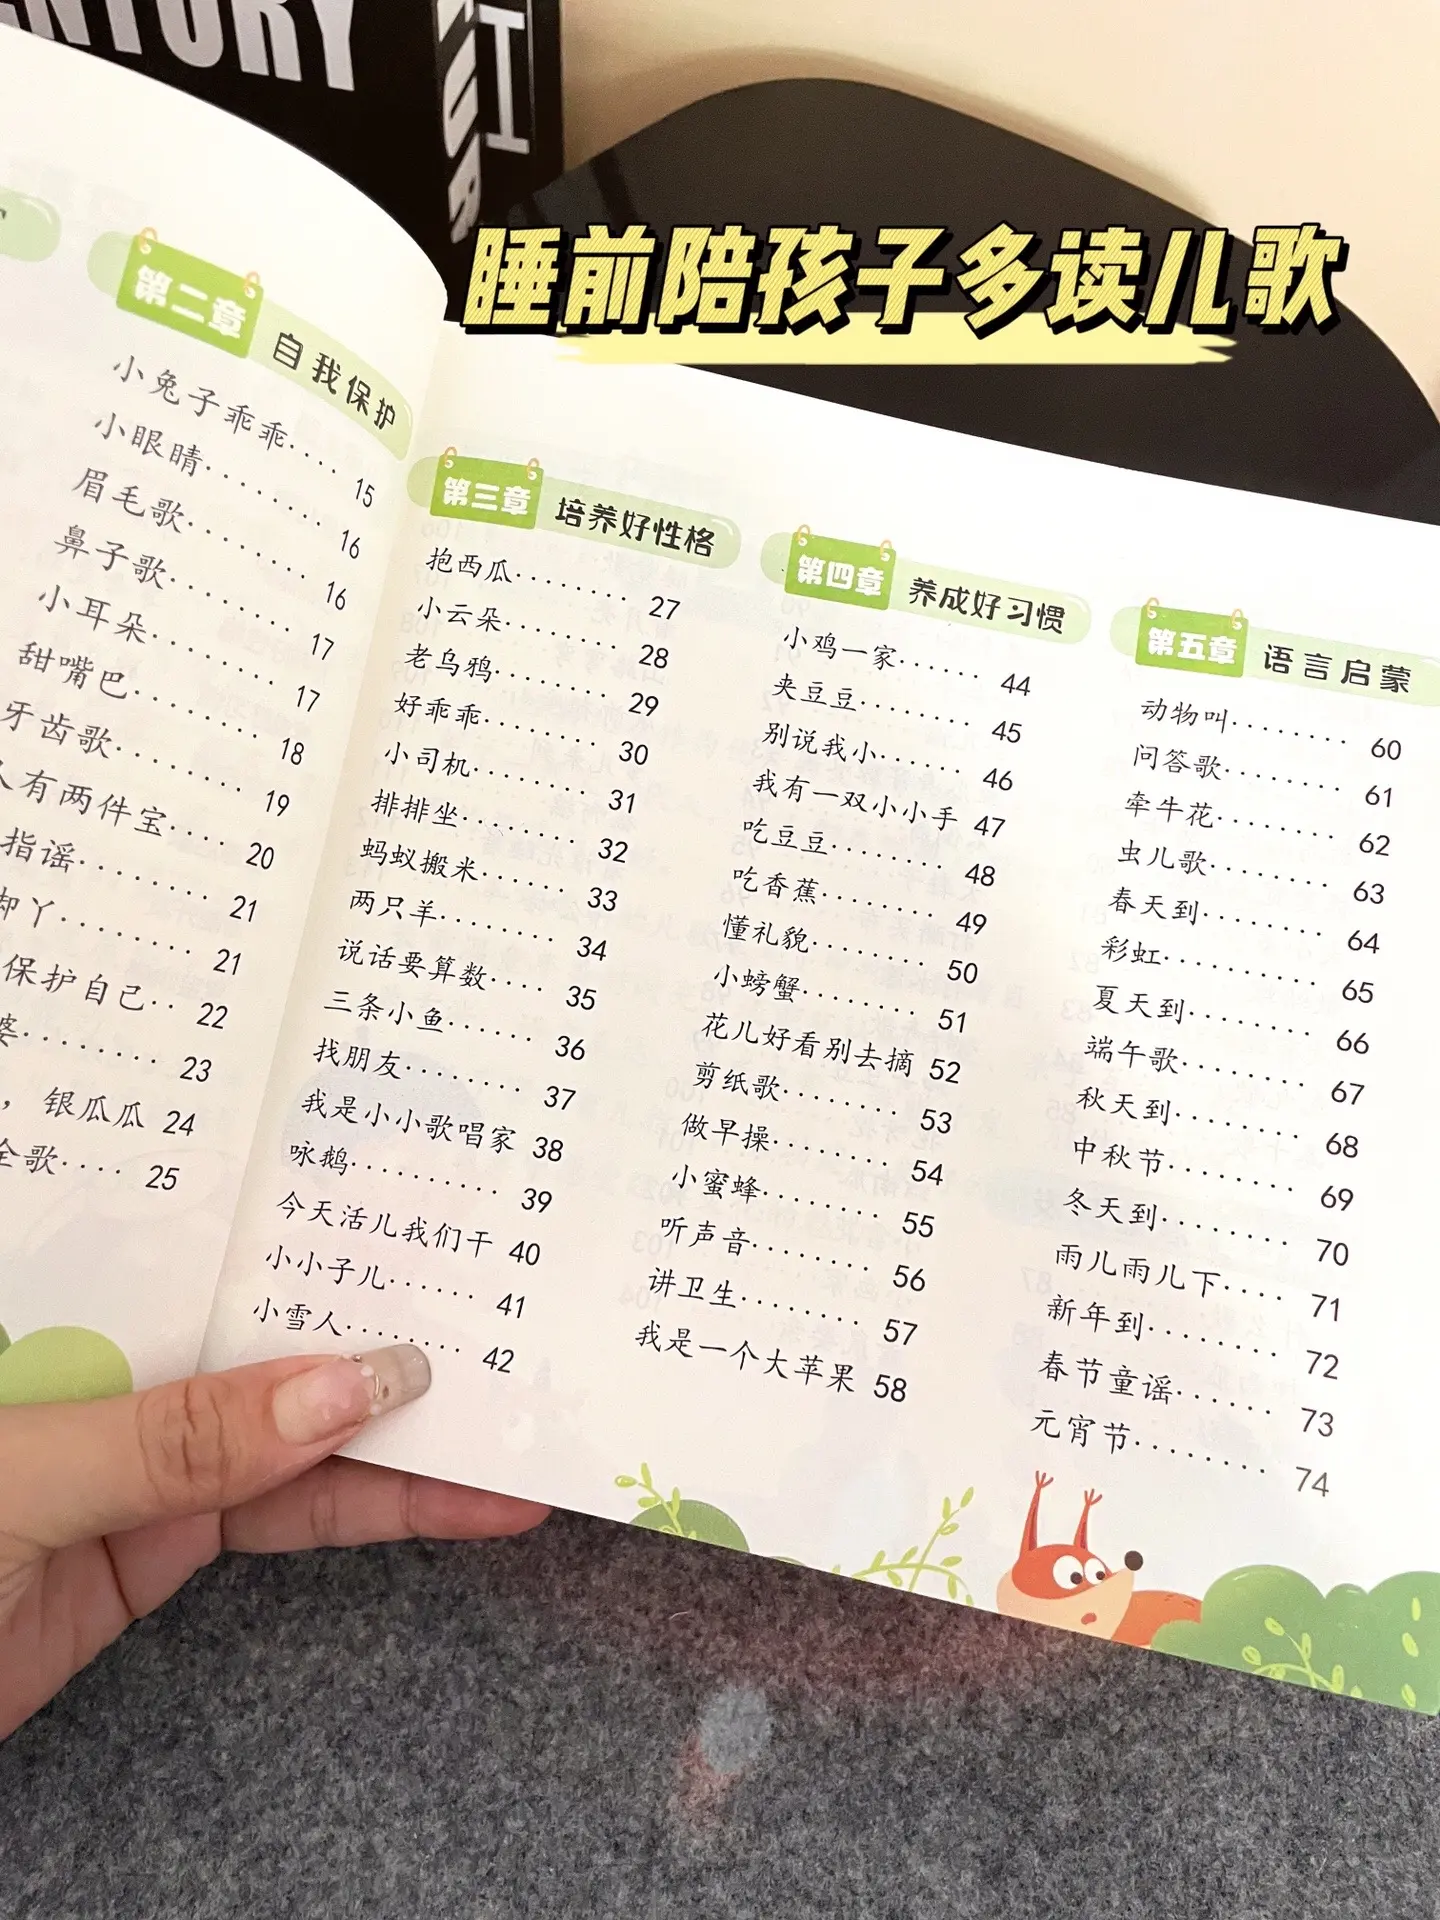 睡前陪孩子多读儿歌
第二章 自我保护
小兔子乖乖···· 15
小眼睛········ 16
眉毛歌········ 16
鼻子歌········ 17
小耳朵········ 17
甜嘴巴········ 18
牙齿歌········ 19
人有两件宝···· 20
指谣········ 21
21
保护自己·· 22
婆········ 23
，银瓜瓜 24
全歌···· 25
第三章 培养好性格
抱西瓜········ 27
小云朵········ 28
老乌鸦········ 29
好乖乖········ 30
小司机········ 31
排排坐········ 32
蚂蚁搬米······ 33
两只羊········ 34
说话要算数···· 35
三条小鱼······ 36
找朋友········ 37
我是小小歌唱家 38
咏鹅·········· 39
今天活儿我们干 40
小小子儿······ 41
小雪人········ 42
第四章 养成好习惯
小鸡一家······ 44
夹豆豆········ 45
别说我小······ 46
我有一双小小手 47
吃豆豆········ 48
吃香蕉········ 49
懂礼貌········ 50
小螃蟹········ 51
花儿好看别去摘 52
剪纸歌········ 53
做早操········ 54
小蜜蜂········ 55
听声音········ 56
讲卫生········ 57
我是一个大苹果 58
第五章 语言启蒙
动物叫········ 60
问答歌········ 61
牵牛花········ 62
虫儿歌········ 63
春天到········ 64
彩虹·········· 65
夏天到········ 66
端午歌········ 67
秋天到········ 68
中秋节········ 69
冬天到········ 70
雨儿雨儿下···· 71
新年到········ 72
春节童谣······ 73
元宵节········ 74